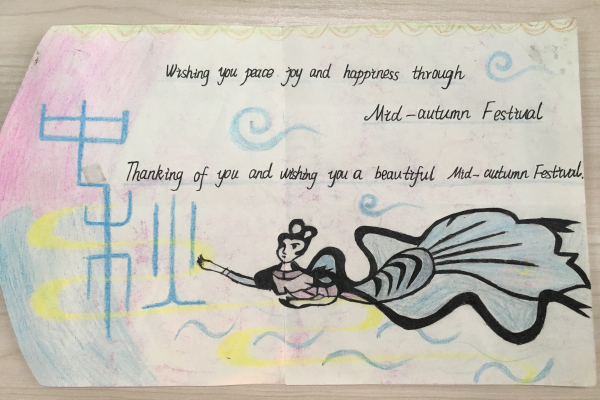 Wishing you peace joy and happiness through
Mid-autumn Festival
Thanking of you and wishing you a beautiful Mid-autumn Festival.